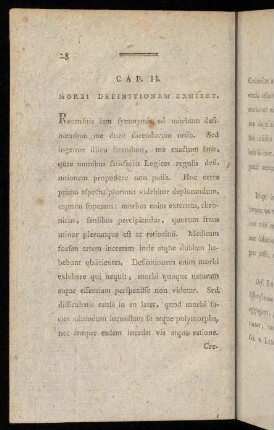 28
CAP. II.
MORBI DEFINITIONEM EXHIBET.
Recensitis iam synonymis ad morbum defi-
niendum me ducit dicendorum ordo. Sed
ingenue illico fatendum, me exactam satis,
quae omnibus satisfaciat Logices regulis defi-
nitionem proponere non posse. Hoc certe
primo aspectu plurimis videbitur deplorandum,
captum superans: morbus enim externus, chro-
nicus, sensibus percipiendus, quorum fraus
minor plerumque est ac rationis. Medicum
forsan artem incertam inde atque dubiam ha-
bebunt obiicientes. Definitionem enim morbi
exhibere qui nequit, morbi quoque naturam
atque essentiam perspexisse non videtur. Sed
difficultatis causa in eo latet, quod morbi fa-
cies admodum inconstans sit atque polymorpha,
nec semper eadem incedat via atque ratione.
Cre-